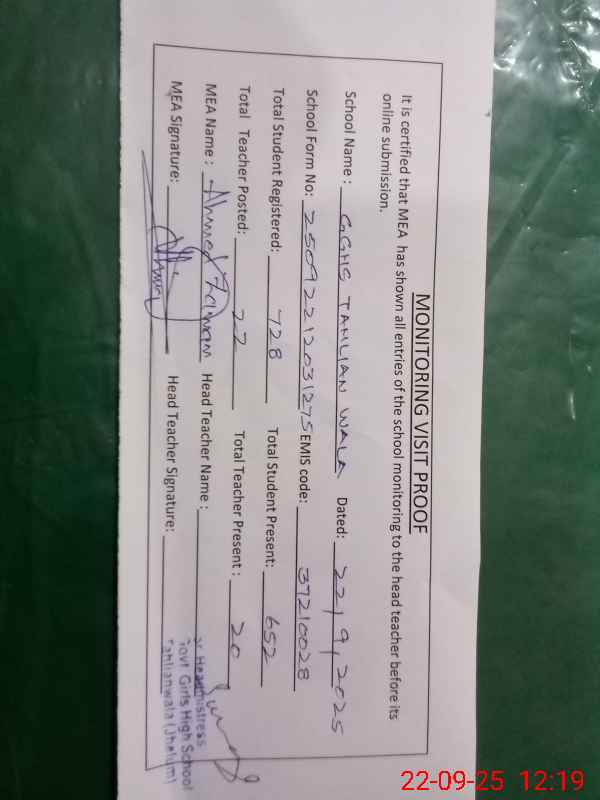 MONITORING VISIT PROOF
It is certified that MEA has shown all entries of the school monitoring to the head teacher before its
online submission.
School Name : GGHS TAHLIAN WALA Dated: 22/9,2025
School Form No: 25092212031275 EMIS code: 37210028
Total Student Registered: 728 Total Student Present: 652
Total Teacher Posted: 22 Total Teacher Present : 20
MEA Name : Ahmed Head Teacher Name :
MEA Signature: Head Teacher Signature:
Sr. Headmistress
Govt. Girls High School
Tahlianwala (Jhelum)
22-09-25 12:19